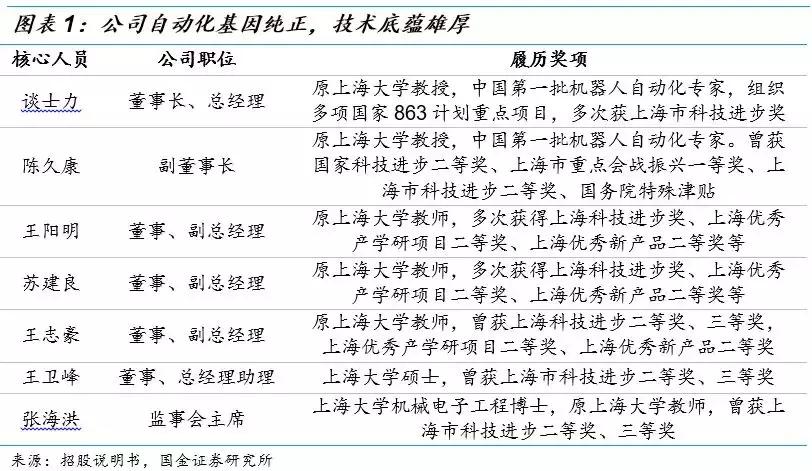 图表 1：公司自动化基因纯正，技术底蕴雄厚
核心人员 公司职位 履历奖项
谈士力 董事长、总经理 原上海大学教授，中国第一批机器人自动化专家，组织
多项国家 863 计划重点项目，多次获上海市科技进步奖
陈久康 副董事长 原上海大学教授，中国第一批机器人自动化专家。曾获
国家科技进步二等奖、上海市重点会战振兴一等奖、上
海市科技进步二等奖、国务院特殊津贴
王阳明 董事、副总经理 原上海大学教师，多次获得上海科技进步奖、上海优秀
产学研项目二等奖、上海优秀新产品二等奖等
苏建良 董事、副总经理 原上海大学教师，多次获得上海科技进步奖、上海优秀
产学研项目二等奖、上海优秀新产品二等奖等
王志豪 董事、副总经理 原上海大学教师，曾获上海科技进步二等奖、三等奖，
上海优秀产学研项目二等奖、上海优秀新产品二等奖
王卫峰 董事、总经理助理 上海大学硕士，曾获上海市科技进步二等奖、三等奖
张海洪 监事会主席 上海大学机械电子工程博士，原上海大学教师，曾获上
海市科技进步二等奖、三等奖
来源：招股说明书，国金证券研究所